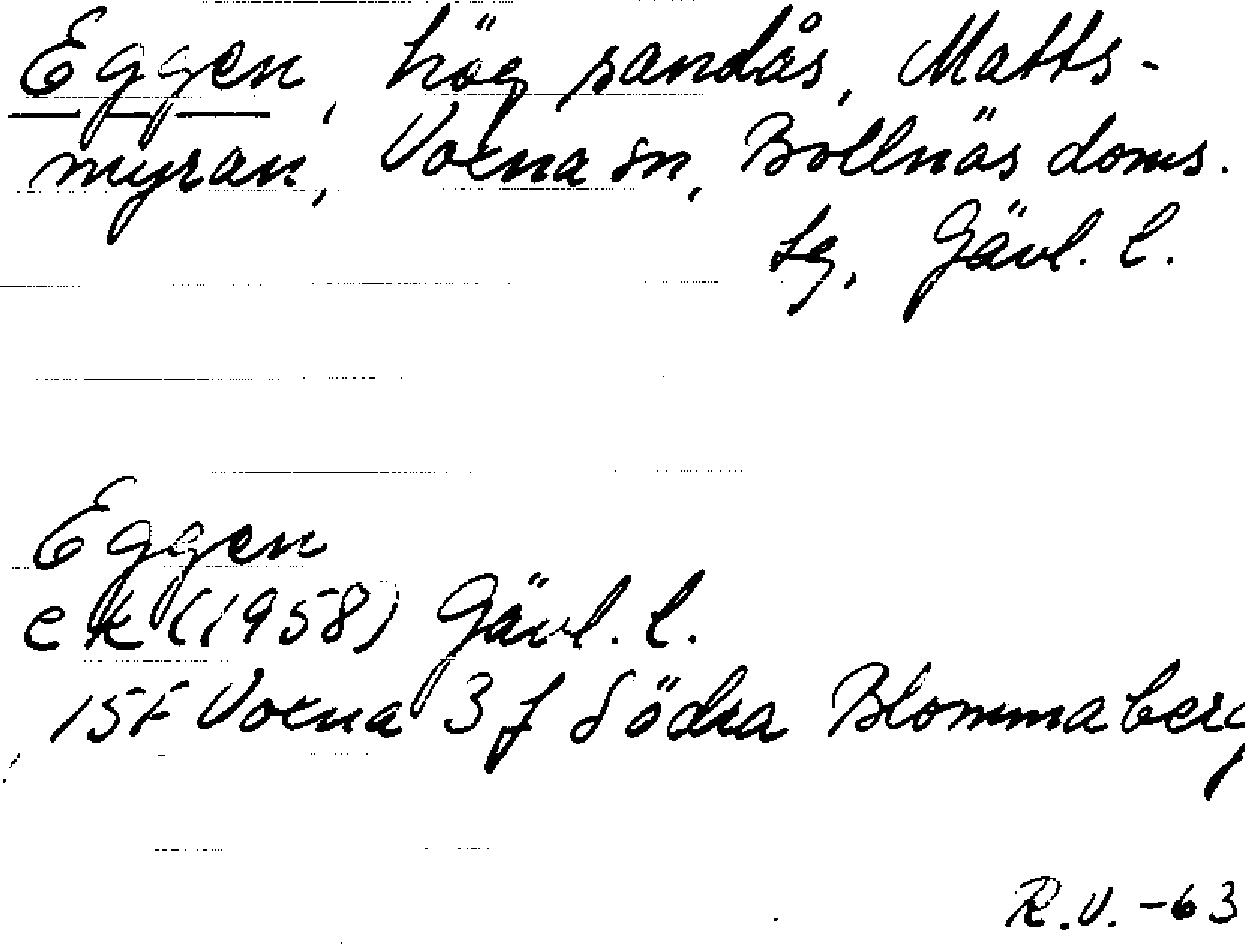 Eggen, hög sandås, Matts-
myran, Voxna sn, Bollnäs doms.
sg, Gävl. l.
Eggen
ek (1958) Gävl. l.
15F Voxna 3f Södra Blommaberg
R.V. -63